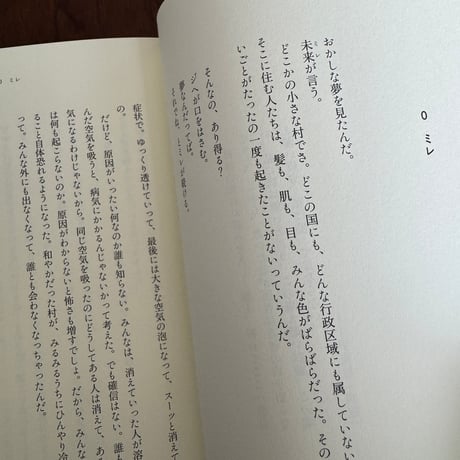 0 ミレ
おかしな夢を見たんだ。
ミレ
未来が言う。
どこかの小さな村でさ。どこの国にも、どんな行政区域にも属していない
そこに住む人たちは、髪も、肌も、目も、みんな色がばらばらだった。その
いごとがたったの一度も起きたことがないっていうんだ。
そんなの、あり得る?
ジヘが口をはさむ。
夢なんだってば。
それでね、とミレが続ける。
0 ミレ
症状で。ゆっくり透けていって、最後には大きな空気の泡になって、スーッと消えて
の。
だけど、原因がいったい何なのか誰も知らない。みんなは、消えていった人が溶
んだ空気を吸うと、病気にかかるんじゃないかって考えた。でも確信はない。誰も
気になるわけじゃないから。同じ空気を吸ったのにどうしてある人は消えて、あ
は何も起こらないのか。原因がわからないと怖さも増すでしょ。だから、みんな
ること自体恐れるようになった。和やかだった村が、みるみるうちにひんやり冷
って。みんな外にも出なくなって、誰とも会わなくなっちゃったんだ。